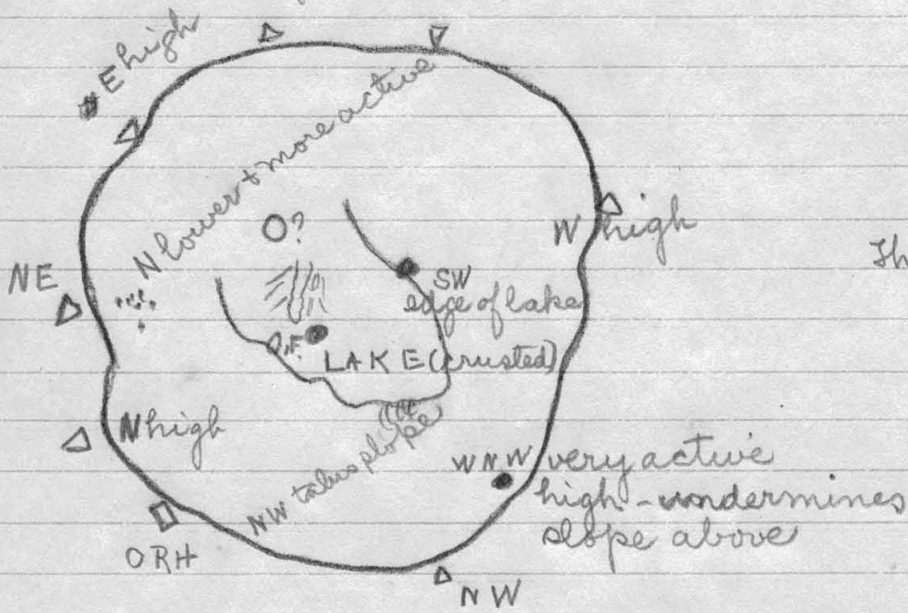 E high
N lower + more active
O?
W high
Th
NE
SW
edge of lake
O.F.
LAKE (crusted)
N high
NW talus slope
WNW very active
high - undermines
slope above
ORH
NW